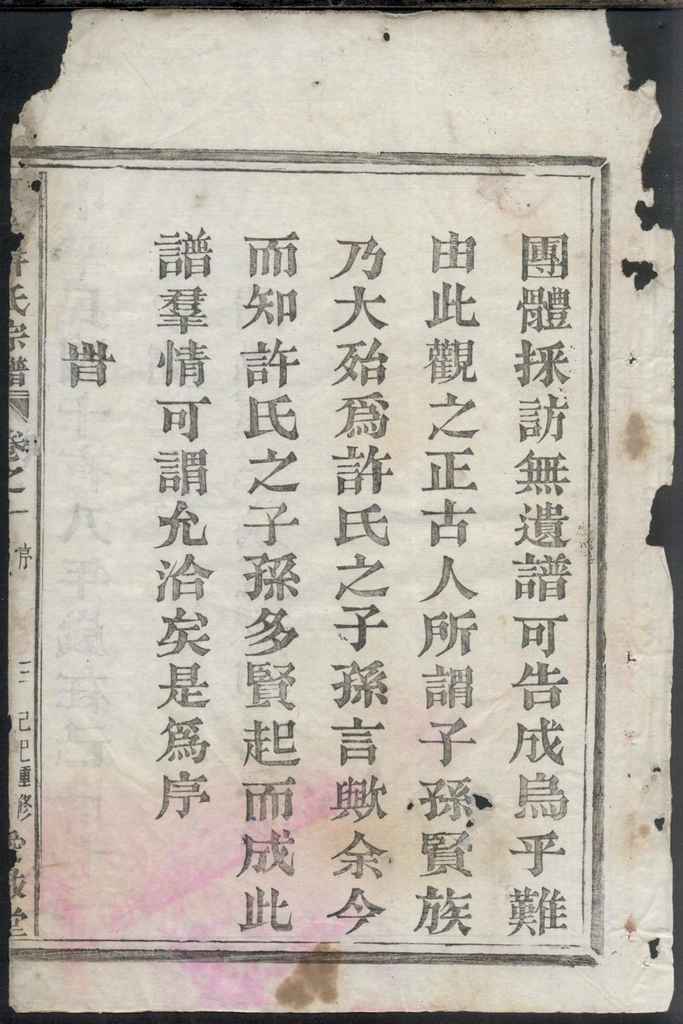 團體採訪無遺譜可告成烏乎難
由此觀之正古人所謂子孫賢族
乃大殆爲許氏之子孫言歟余今
而知許氏之子孫多賢起而成此
譜羣情可謂允洽矣是爲序
旹
許氏宗譜 卷之一 序 三 己巳重修 堂